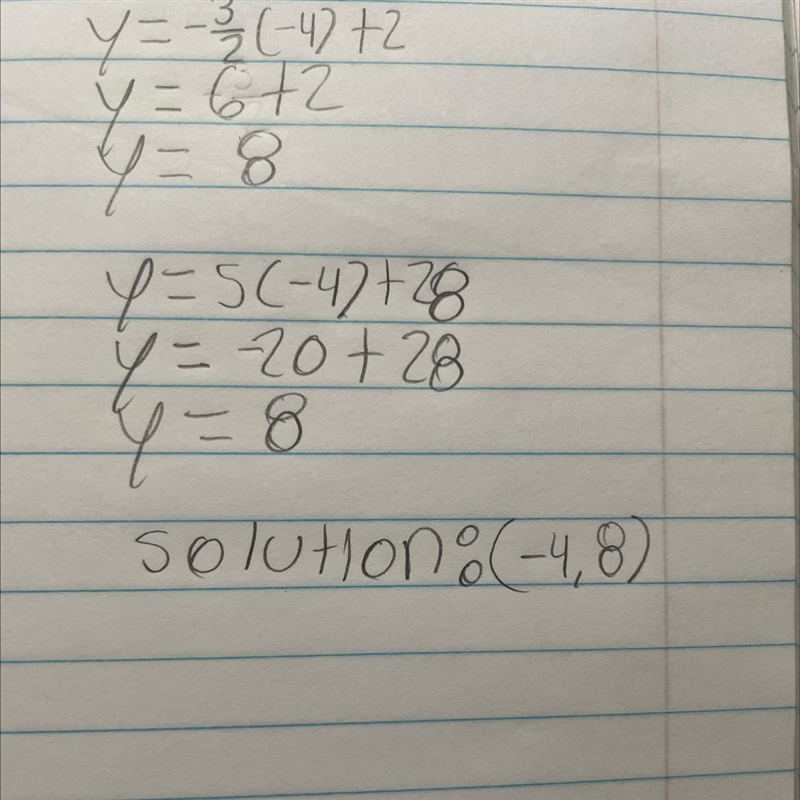 y = -3/2 (-4) + 2
y = 6 + 2
y = 8
y = 5(-4) + 28
y = -20 + 28
y = 8
solution: (-4, 8)